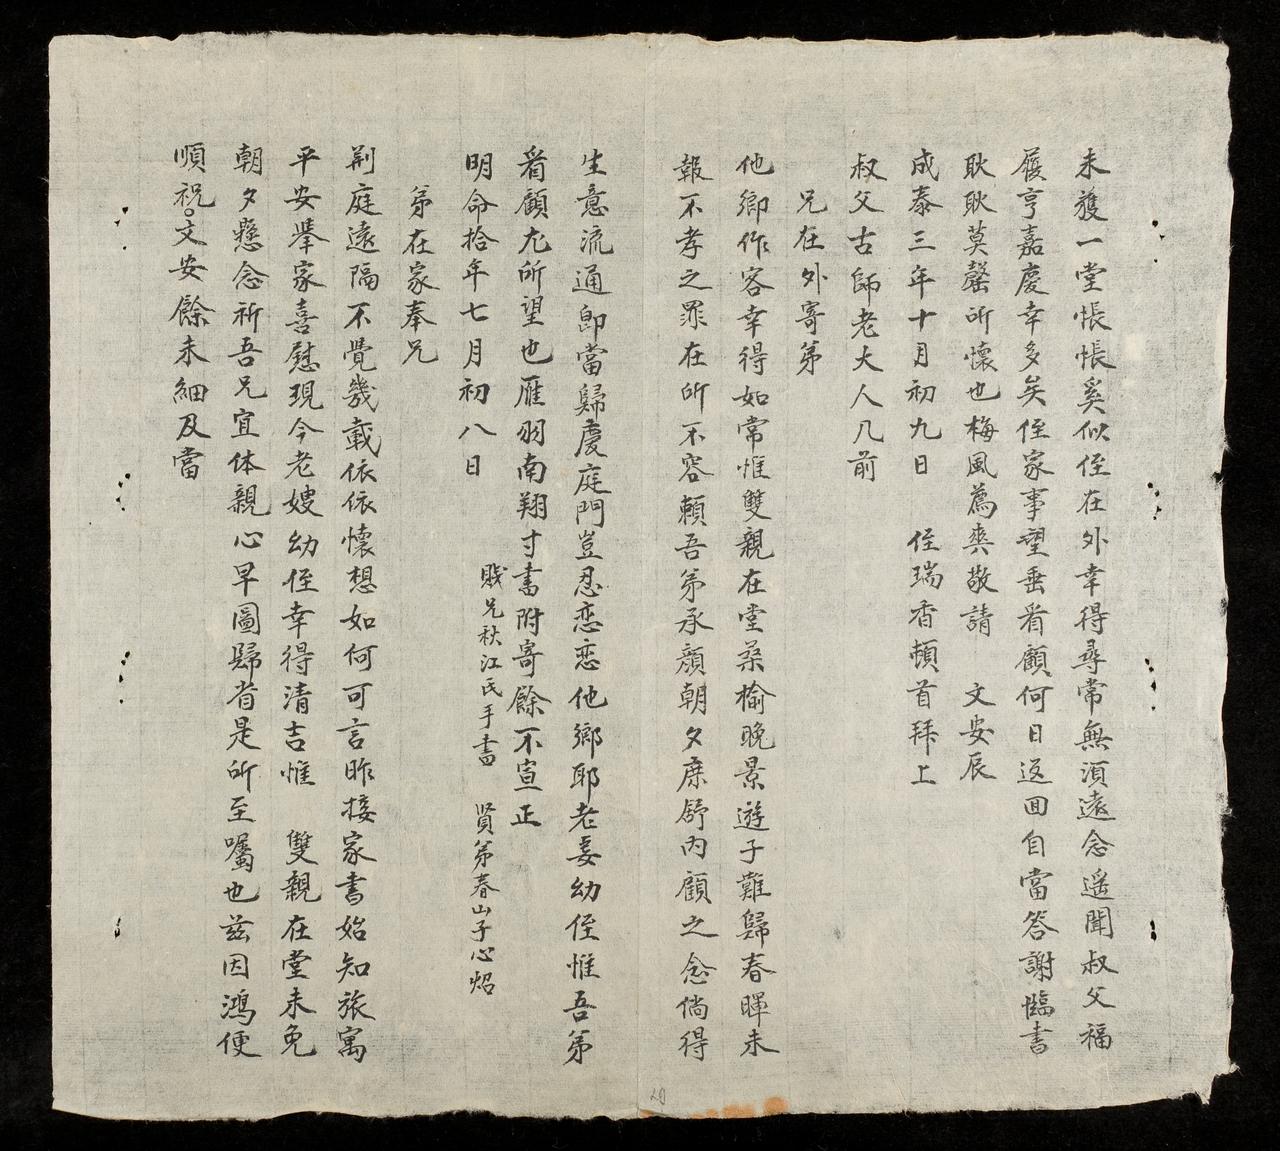 未獲一堂悵悵奚似侄在外幸得尋常無須遠念遥聞叔父福
履亨嘉慶幸多矣侄家事望垂看顧何日返囬自當答謝臨書
耿耿莫罄所懷也梅風薦爽敬請 文安辰
成泰三年十月初九日 侄瑞香頓首拜上
叔父古師老大人几前
兄在外寄弟
他鄉作客幸得如常惟雙親在堂桑榆晚景遊子難歸春暉未
報不孝之罪在所不容頼吾弟承顔朝夕庶舒内顧之念倘得
生意流通即當歸慶庭門豈忍恋恋他鄉耶老妾幼侄惟吾弟
看顧尢所望也雁羽南翔寸書附寄餘不宣正
明命拾年七月初八日 賎兄秋江氏手書 賢弟春山子心炤
弟在家奉兄
荆庭遠隔不覺幾載依依懷想如何可言昨接家書始知旅寓
平安舉家喜慰現今老嫂幼侄幸得清吉惟 雙親在堂未免
朝夕懸念祈吾兄宜体親心早圖歸省是所至囑也茲因鴻便
順祝。文安餘未細及當
20